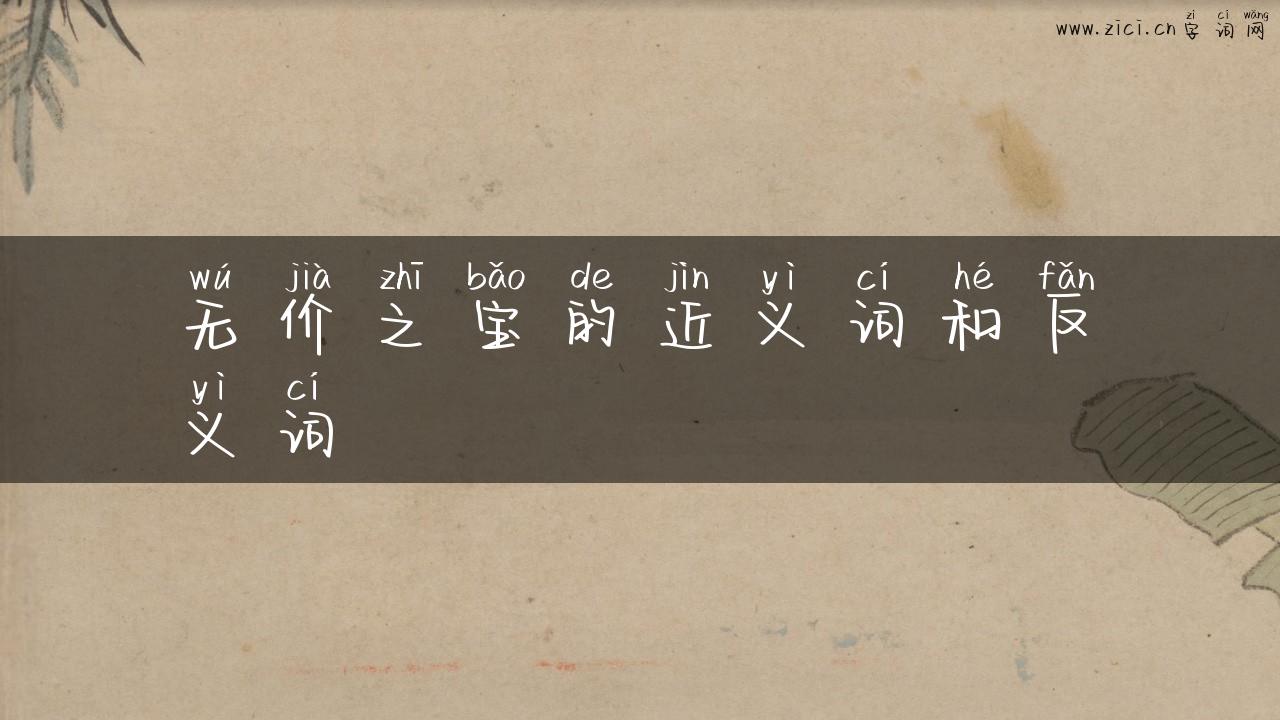 zì cí wǎng
www.zici.cn 字词网
wú jià zhī bǎo de jìn yì cí hé fǎn
无价之宝的近义词和反
yì cí
义词